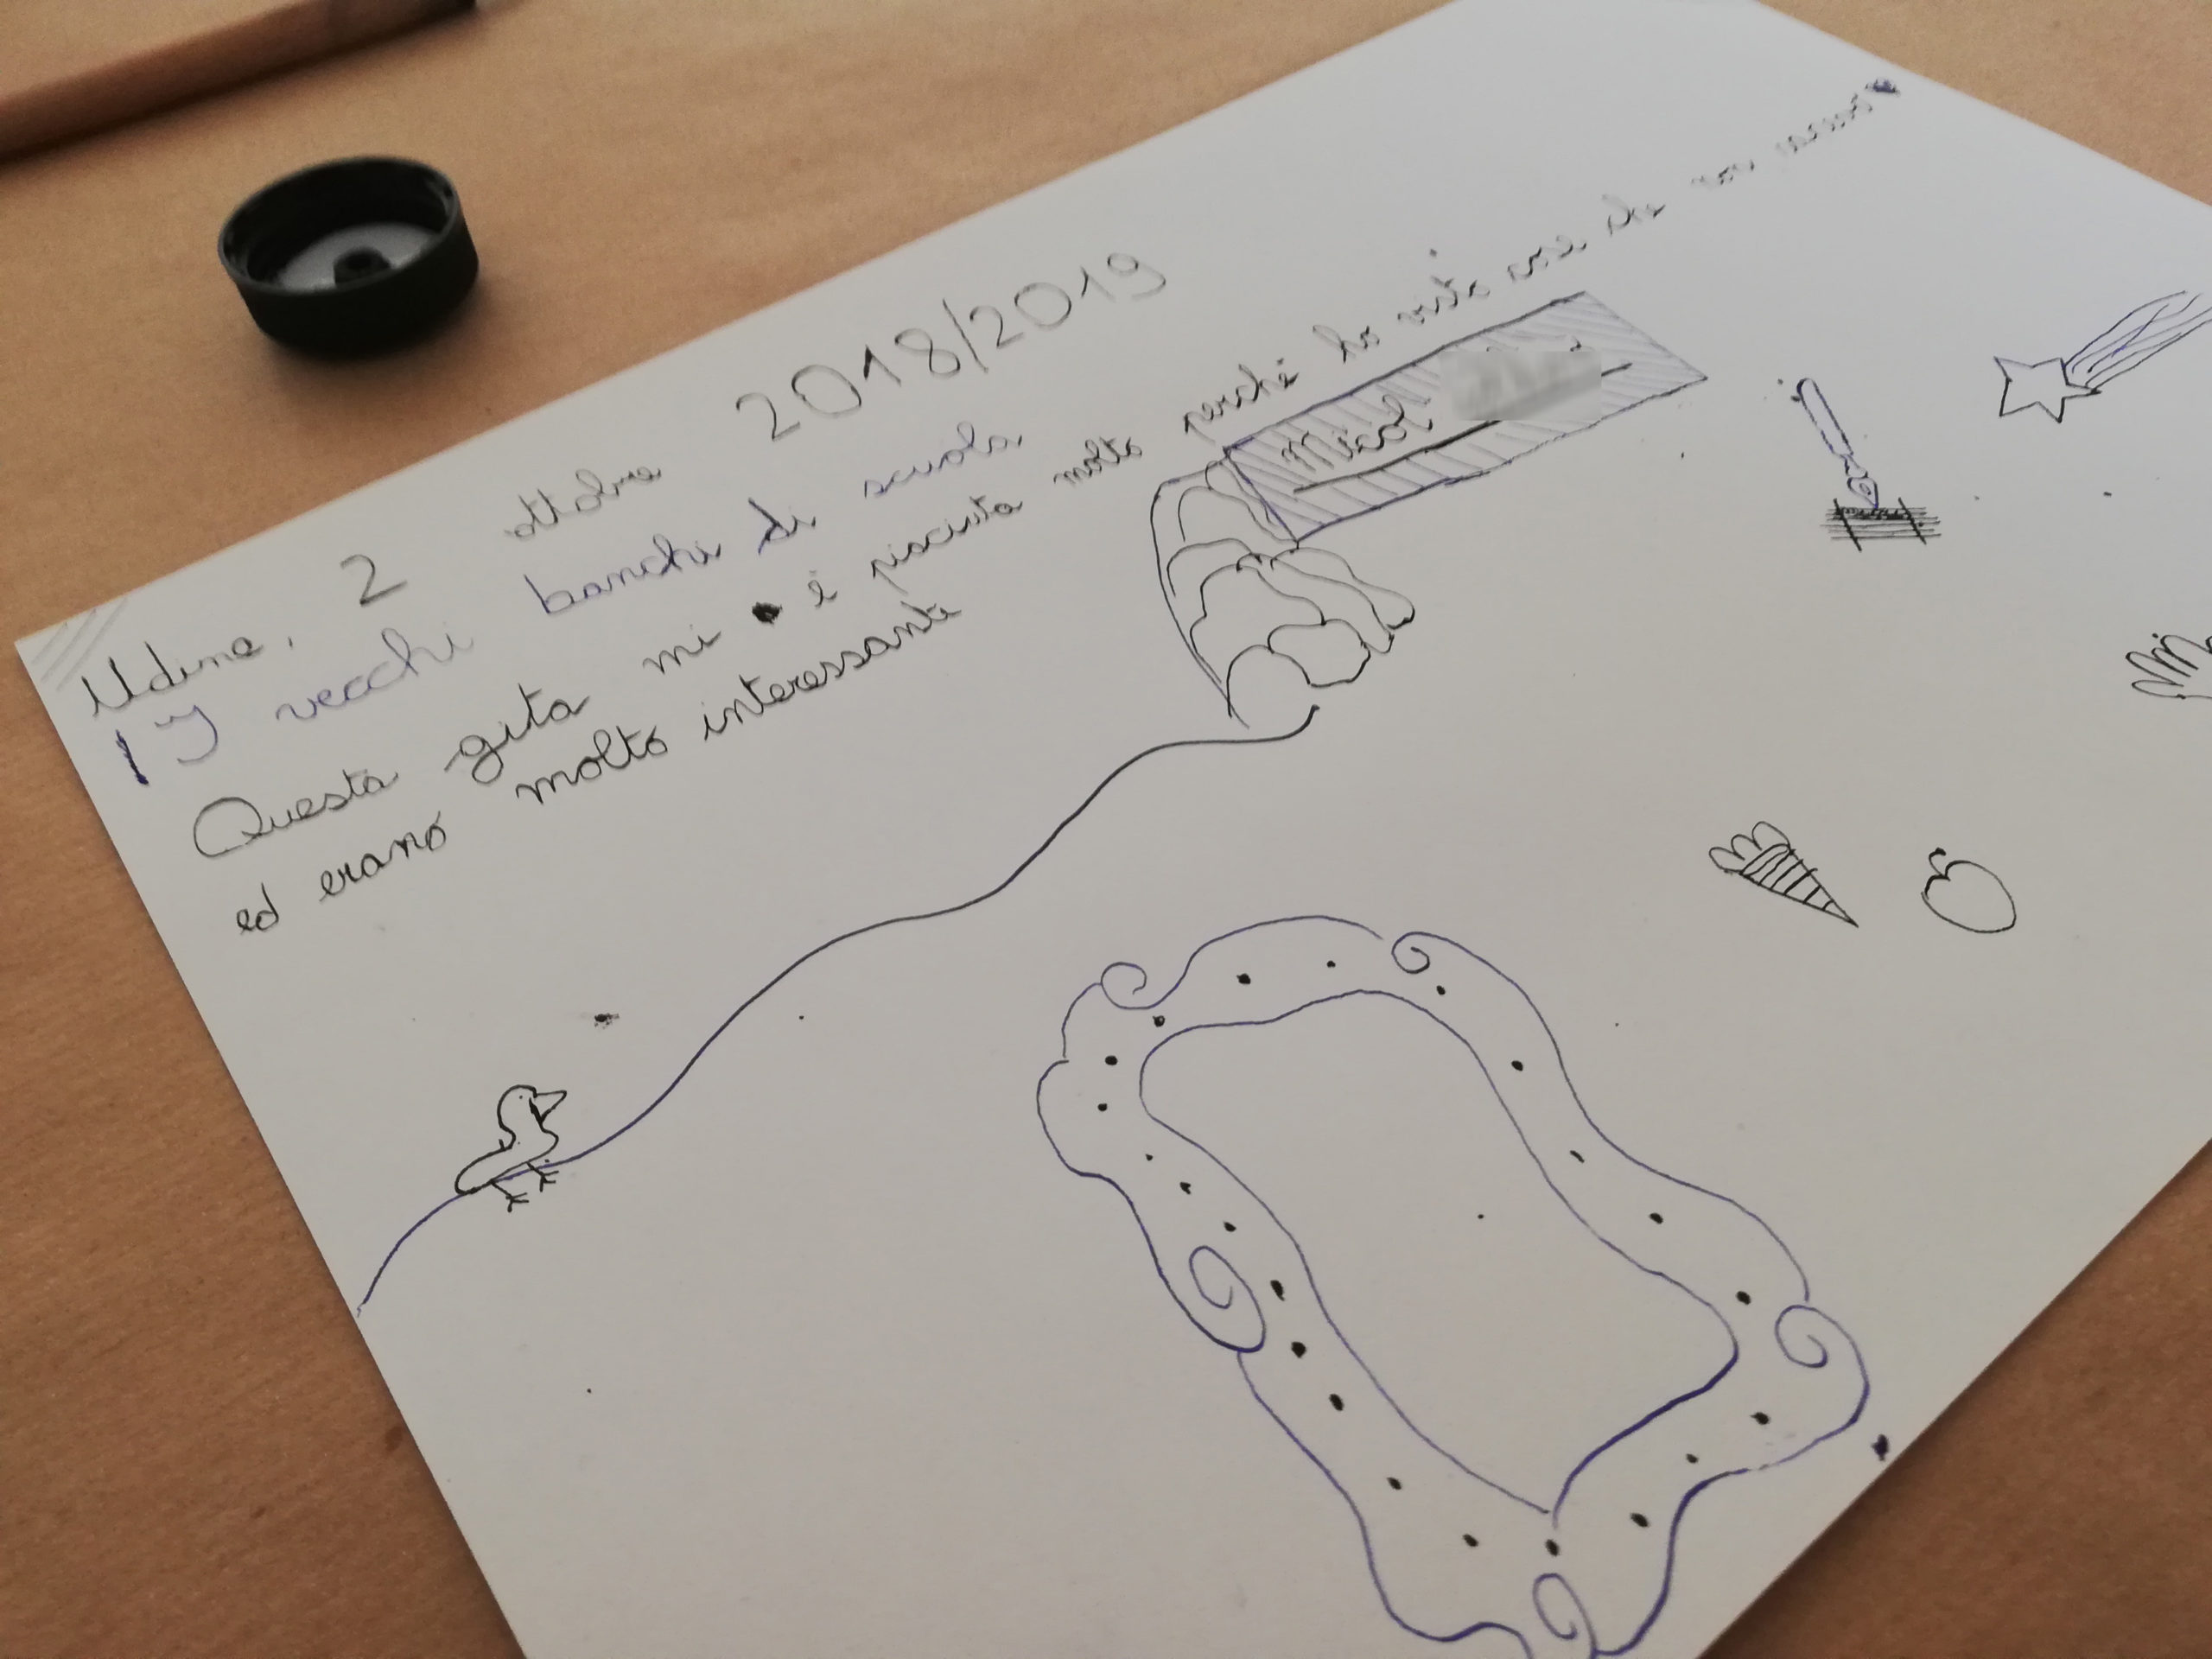 Udine, 2 ottobre 2018/2019
I vecchi banchi di scuola
Questa gita mi è piaciuta molto perché ho visto cose che non
ed erano molto interessanti
Micol